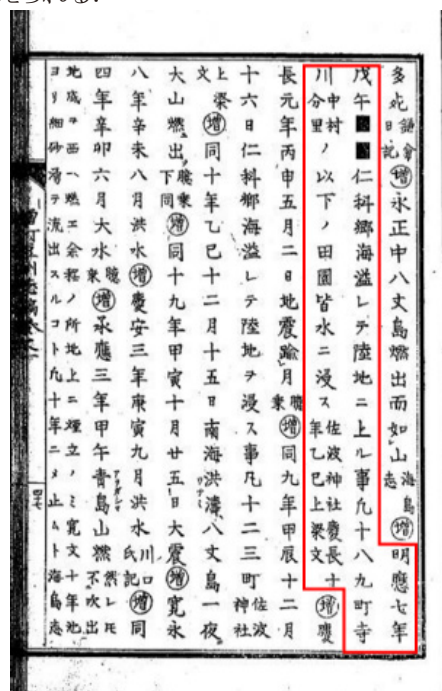 られる.
多死鎌倉日記増永正中八丈島燃出而如山海島志増明應七年
戊午■■仁科郷海溢レテ陸地ニ上ル事凡十八九町寺
川中村分里ノ以下ノ田園皆水ニ浸ス佐波神社慶長十年乙巳上梁文増慶
長元年丙申五月二日地震踰月聴乗増同九年甲辰十二月
十六日仁科郷海溢レテ陸地ヲ浸ス事凡十二三町佐波神社
上梁文増同十年乙巳十二月十五日南海洪濤ツナミ八丈島一夜
大山燃出聴乗下同増同十九年甲寅十月廿五日大震増寛永
八年辛未八月洪水増慶安三年庚寅九月洪水川口氏記増同
四年辛卯六月大水聴乗増承應三年甲午青島アヲガシマ山燃然レ𪜈不吹出
地成ヲ西ヘ燃エ余程ノ所地上ニ煙立ノミ寛文十年
ヨリ細砂湯ヲ流出スルコト凡十年ニメ止ムト海島志
四七